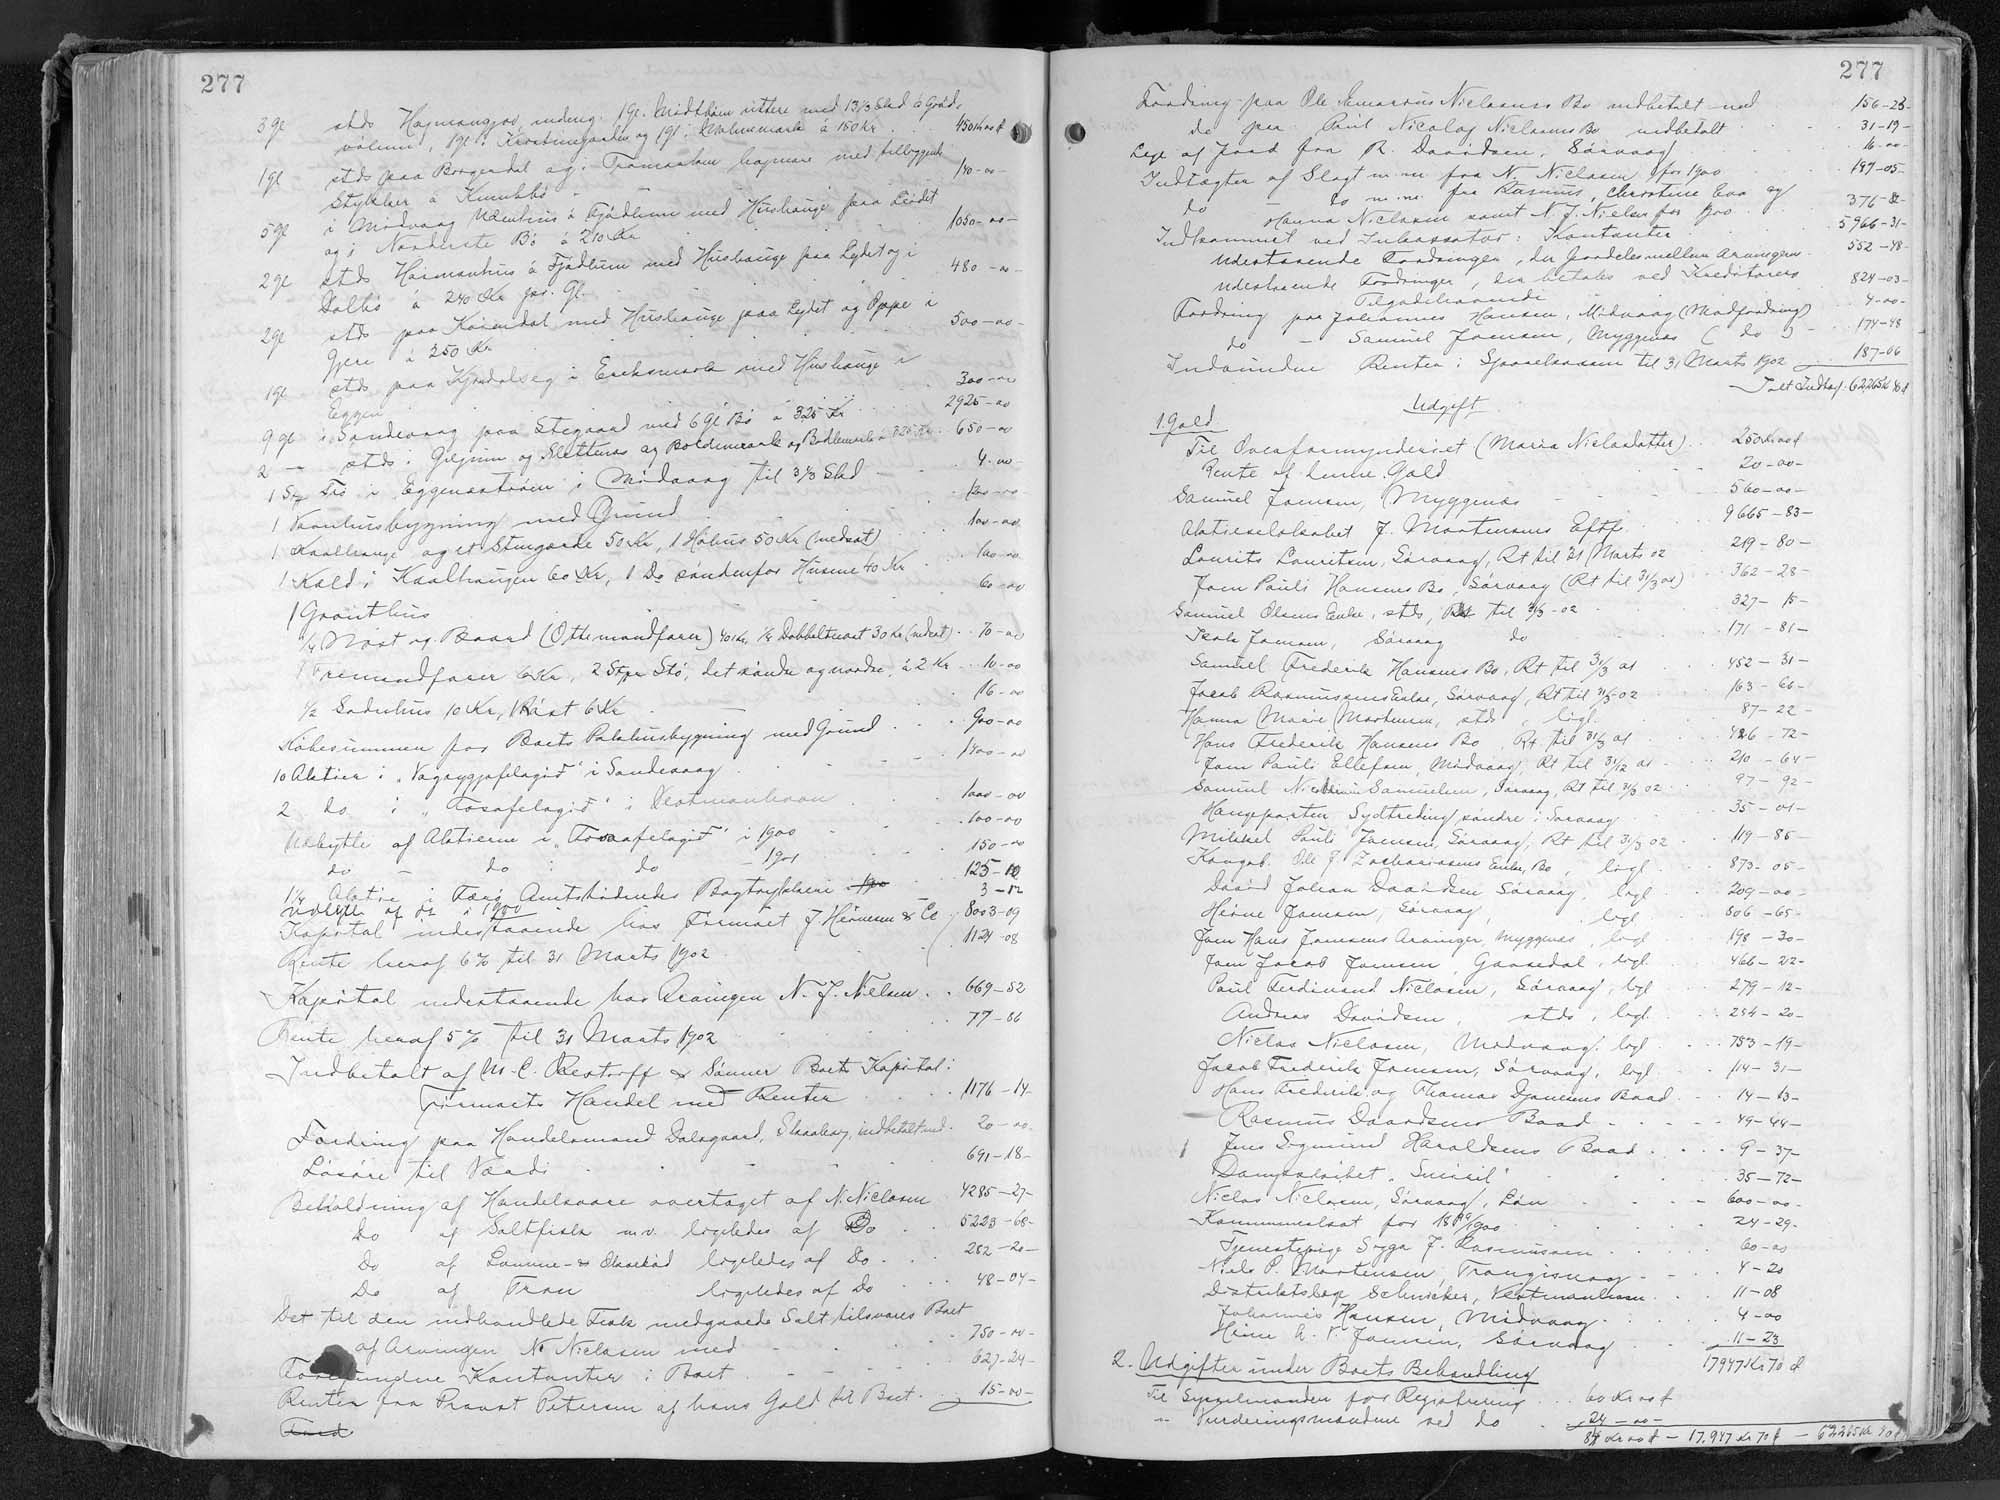 277
3 gl stds Høgmansgjov, uding. 1 gl. Midthavn uttere med 13 1/3 Skd à
1 gl i Kvalnumark à 150 Kr. . . 450 Kr 00 ø
1 gl stds paa Borgardal og i Tramarhun haymare med tilliggende
Stykker à Kumbbö 140-00
5 gl i Midvaag Uttenhus à Fjødlum med Hushauge paa Leidet
og i Nørdeste Bö à 210 Kr 1050-00-
2 gl stds Heimanhus à Fjødlum med Hushauge paa Lejdet og i
Dalbö à 240 Kr pr. Gl. 480-00-
2 gl stds paa Kørindal med Hushauge paa Lejdet og Oppe i
Gjerе à 250 Kr 500-00-
1 gl stds paa Kjødalseg i Eriksmark med Hushauge i
Eggen 300-00
9 gl i Sandevaag paa Stegaard med 6 Gl Bö à 325 Kr 2925-00
2 - stds i Giljnum og Slettenes og Boldemark og Bødlemark à 325 Kr. 650-00
1 Stk Trö i "Eggenaströin" i Midvaag til 3 1/3 Skd 4-00-
1 Vaanhusbygning med Grund 1200-00-
1 Kaalhauge og et Stengærde 50 Kr, 1 Høhus 50 Kr (nedsat) 100-00
1 Kald i Kaalhaugen 60 Kr, 1 Do søndenfor Husene 40 Kr 100-00
1 Grønthus 60-00
1/4 Nøst og Baard (Ottemandfarer) 40 Kr, 1/4 Dobbeltnøst 30 Kr (nedsat) . . 70-00
1 Tremandfarer 6 Kr, 2 Stpr Stö, det søndre og nordre, à 2 Kr - - 10-00
1/2 Sodnhus 10 Kr, 1 Räst 6 Kr 16-00
Købesummen for Boets Pakhusbygning med Grund . . . 900-00
10 Aktier i "Vagsyggjafelagid" i Sandevaag 1400-00
2 do i "Fossafelagid" i Vestmanhavn 1000-00
Udbytte af Aktierne i "Fossafelagid" i 1900 100-00
do - do i do - 1901 150-00
1 1/4 Aktie i Færø Amtstidendes Bogtrykkeri 125-00
Udbytte af do i 1900 3-12
Kapital indestaaende hos Firmaet J. Heinesen & Co 8003-09
Rente heraf 6% til 31 Marts 1902 1124-08
Kapital indestaaende hos Arvingen N. J. Nielsen . . 669-52
Rente heraf 5% til 31 Marts 1902 77-86
Indbetalt af M. C. Restorff & Sønner Boets Kapital i
Firmaets Handel med Renter 1176-14-
Fordring paa Handelsmand Dalsgaard, Skaalevig, indbetalt med. 20-00.
Løsøre til Værdi 691-18-
Beholdning af Handelsvare overtaget af N. Niclasen 4285-27-
Do af Saltfisk m.v. ligeledes af Do . . 5223-68-
Do af Lamme- & Oksekød ligeledes af Do . . . 282-20-
Do af Tran ligeledes af Do . . . 48-04-
Det til den indhandlede Fisk medgaaede Salt tilsvares Boet
af Arvingen N. Niclasen med 750-00-
Forefundne Kontanter i Boet 627-24-
Renter fra Provst Petersen af hans Gæld til Boet . . 15-00-
277
Fordring paa Ole Emarsus Niclasens Bo indbetalt med 156-23-
do paa Poul Nicolaj Niclasens Bo indbetalt 31-19-
Leje af Jord fra R. Davidsen, Sörvaag 16-00-
Indtægter af Slagt m.m. fra N. Niclasen for 1900 197-05-
do - do m.m. fra Rasmus, Christine Eva og
Hanna Niclasen samt N. J. Nielsen for 1900 376-82-
Indkommet ved Inkassator: Kontanter 5966-31-
udestaaende Fordringer, der fordeles mellem Arvingerne. 552-48-
udestaaende Fordringer, der betales ved Kreditorers
Tilgodehavende 824-03-
Fordring paa Johannes Hansen, Midvaag (Modfordring) 4-00-
do - Samuel Joensen, Myggenæs ( do ) - 174-48
Indvundne Renter i Sparekassen til 31 Marts 1902 187-06
Ialt Indtægt 62265 Kr 70 ø
Udgift
1. Gæld.
Til Overformynderiet (Maria Niclasdatter) . . 250 Kr 00 ø
Rente af denne Gæld 20-00-
Samuel Joensen, Myggenæs 560-00-
Aktieselskabet J. Mortensens Eftf. 9665-83-
Laurits Lauritsen, Sörvaag, Rt til 31 Marts 02 219-80-
Joen Pauli Hansens Bo, Sörvaag (Rt til 31/3 01) 362-28-
Samuel Olsens Enke, stds, Rt til 31/3-02 327-15-
Isak Joensen, Sörvaag do 171-81-
Samuel Frederik Hansens Bo, Rt til 31/3 01 452-31-
Jacob Rasmussens Enke, Sörvaag, Rt til 31/3-02 163-66-
Hanna Marie Mortensen, stds, ligl. 87-22-
Hans Frederik Hansens Bo, Rt. til 31/3 01 426-72-
Joen Pauli Ellefsen, Midvaag, Rt til 31/12 01 210-64-
Samuel Nicodemus Samuelsen, Sörvaag, Rt til 31/3 02 97-92-
Haugeparten Sydtreding søndre i Sörvaag 35-01-
Mikkel Pauli Joensen, Sörvaag, Rt til 31/3 02 119-86-
Kongsb. Ole J. Zachariasens Enkes Bo, ligl. 873-05-
David Johan Davidsen Sörvaag, ligl 209-00-
Heine Joensen, Sörvaag, ligl 806-65-
Joen Hans Joensens Arvinger, Myggenæs, ligl 198-30-
Joen Jacob Joensen, Gaasedal, ligl. 466-22-
Poul Ferdinand Niclasen, Sörvaag, ligl 279-12-
Andreas Davidsen, stds, ligl. 254-20-
Niclas Niclasen, Midvaag, ligl 753-19-
Jacob Frederik Joensen, Sörvaag, ligl. 114-31-
Hans Frederik og Thomas Djonesens Baad 14-13-
Rasmus Davidsens Baad 49-44-
Jens Sigmund Haraldsens Baad 9-37-
Dampskibet "Smiril" 35-72-
Niclas Niclasen, Sörvaag, Løn 600-00-
Kommuneskat for 1899/1900 24-29-
Tjenestepige Sigga J. Rasmussen 60-00
Niels P. Mortensen, Trangisvaag 4-20
Distriktslæge Schwicker, Vestmanhavn 11-08
Johannes Hansen, Midvaag 4-00
Heine A. V. Joensen, Sörvaag 11-23
17947 Kr 70 ø
2. Udgifter under Boets Behandling
Til Sysselmanden for Registrering . . 60 Kr 00 ø
" Vurderingsmændene ved do 24-00-
84 Kr 00 ø - 17.947 Kr 70 ø - 62265 Kr 70 ø